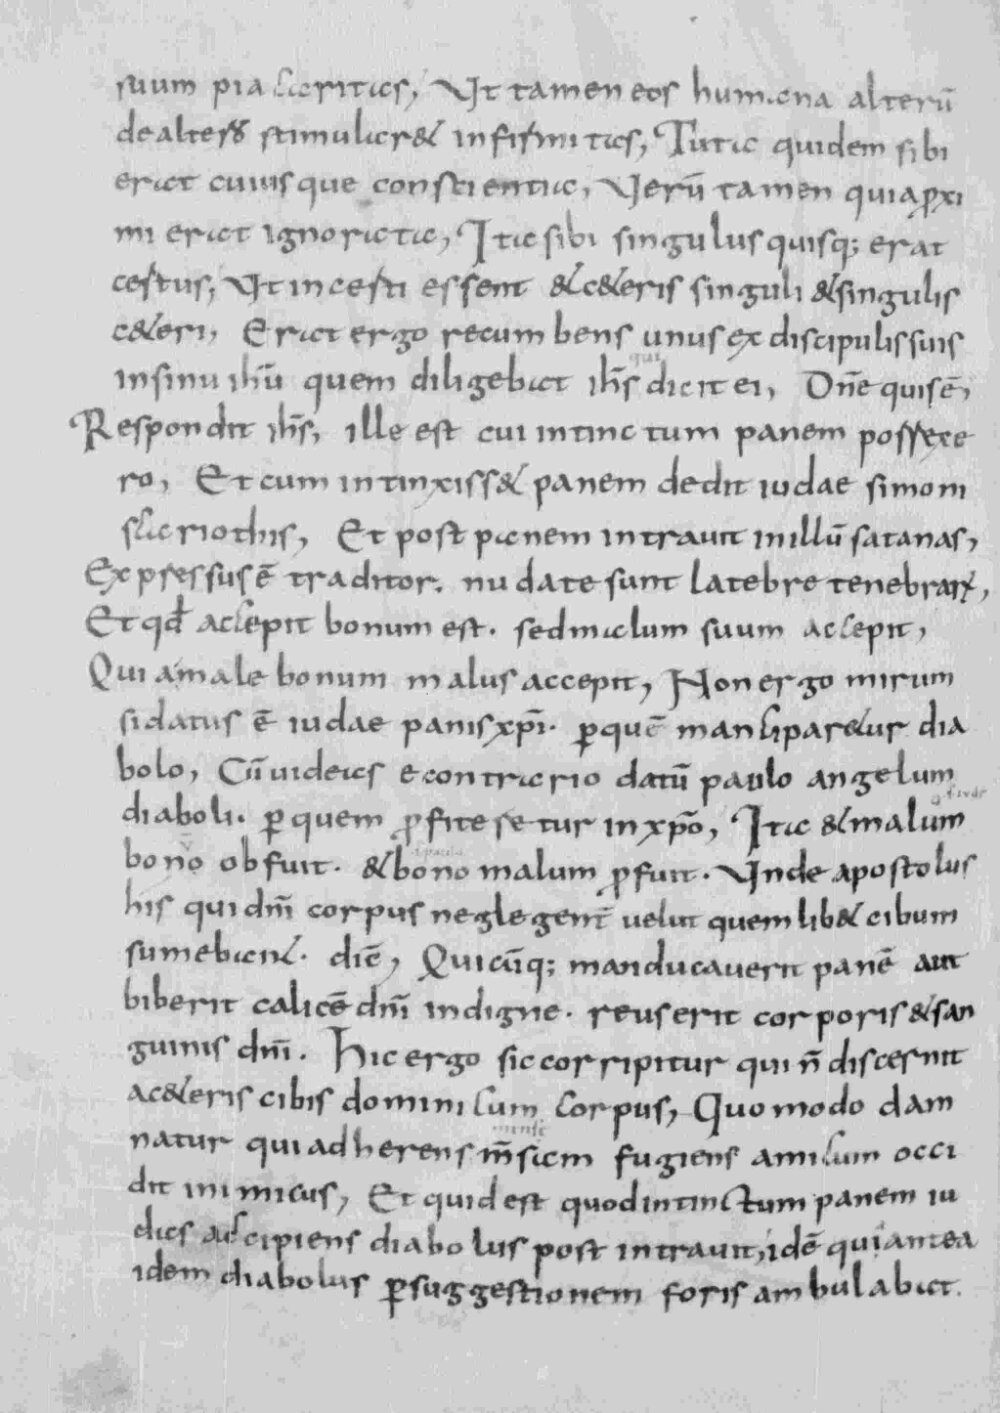 suum pia caritas, Ut tamen eos humana alterū
de altero stimularet infirmitas, Tuta quidem sibi
erat cuiusque conscientia, Verū tamen quia ꝓxi
mi erat ignorata, Ita sibi singulus quisq; erat
certus, Ut incerti essent & c&eris singuli & singulis
c&eri, Erat ergo recumbens unus ex discipulis suis
in sinu ihū quem diligebat ihs̄ dicit ei, Dn̄e quis ē,
Respondit ihs̄, ille est cui intinctum panem porrexe
ro, Et cum intinxiss& panem dedit iudae simoni
scariothis, Et post panem intravit in illū satanas,
Expressus ē traditor. nudate sunt latebre tenebraꝝ,
Et qđ accepit bonum est. sed malum suum accepit,
Qui a male bonum malus accepit, Non ergo mirum
si datus ē iudae panis xp̄i. ꝑ quē manciparetur dia
bolo, Cū uideas e contrario datū paulo angelum
diaboli. ꝑ quem ꝓficeretur in xp̄o, Ita & malum
bono obfuit. & bono malum ꝓfuit. Unde apostolus
his qui dn̄i corpus neglegent̄ velut quemlib& cibum
sumebant. dic̄, Quicūq; manducauerit panē aut
biberit calicē dn̄i indigne. reus erit corporis & san
guinis dn̄i. Hic ergo sic corripitur qui n̄ discernit
a c&eris cibis dominicum corpus, Quomodo dam
natur qui adherens m̄sam fugiens amicum occi
dit inimicus, Et quid est quod intinctum panem iu
das accipiens diabolus post intravit, idē qui antea
idem diabolus ꝑ suggestionem foris ambulabat.